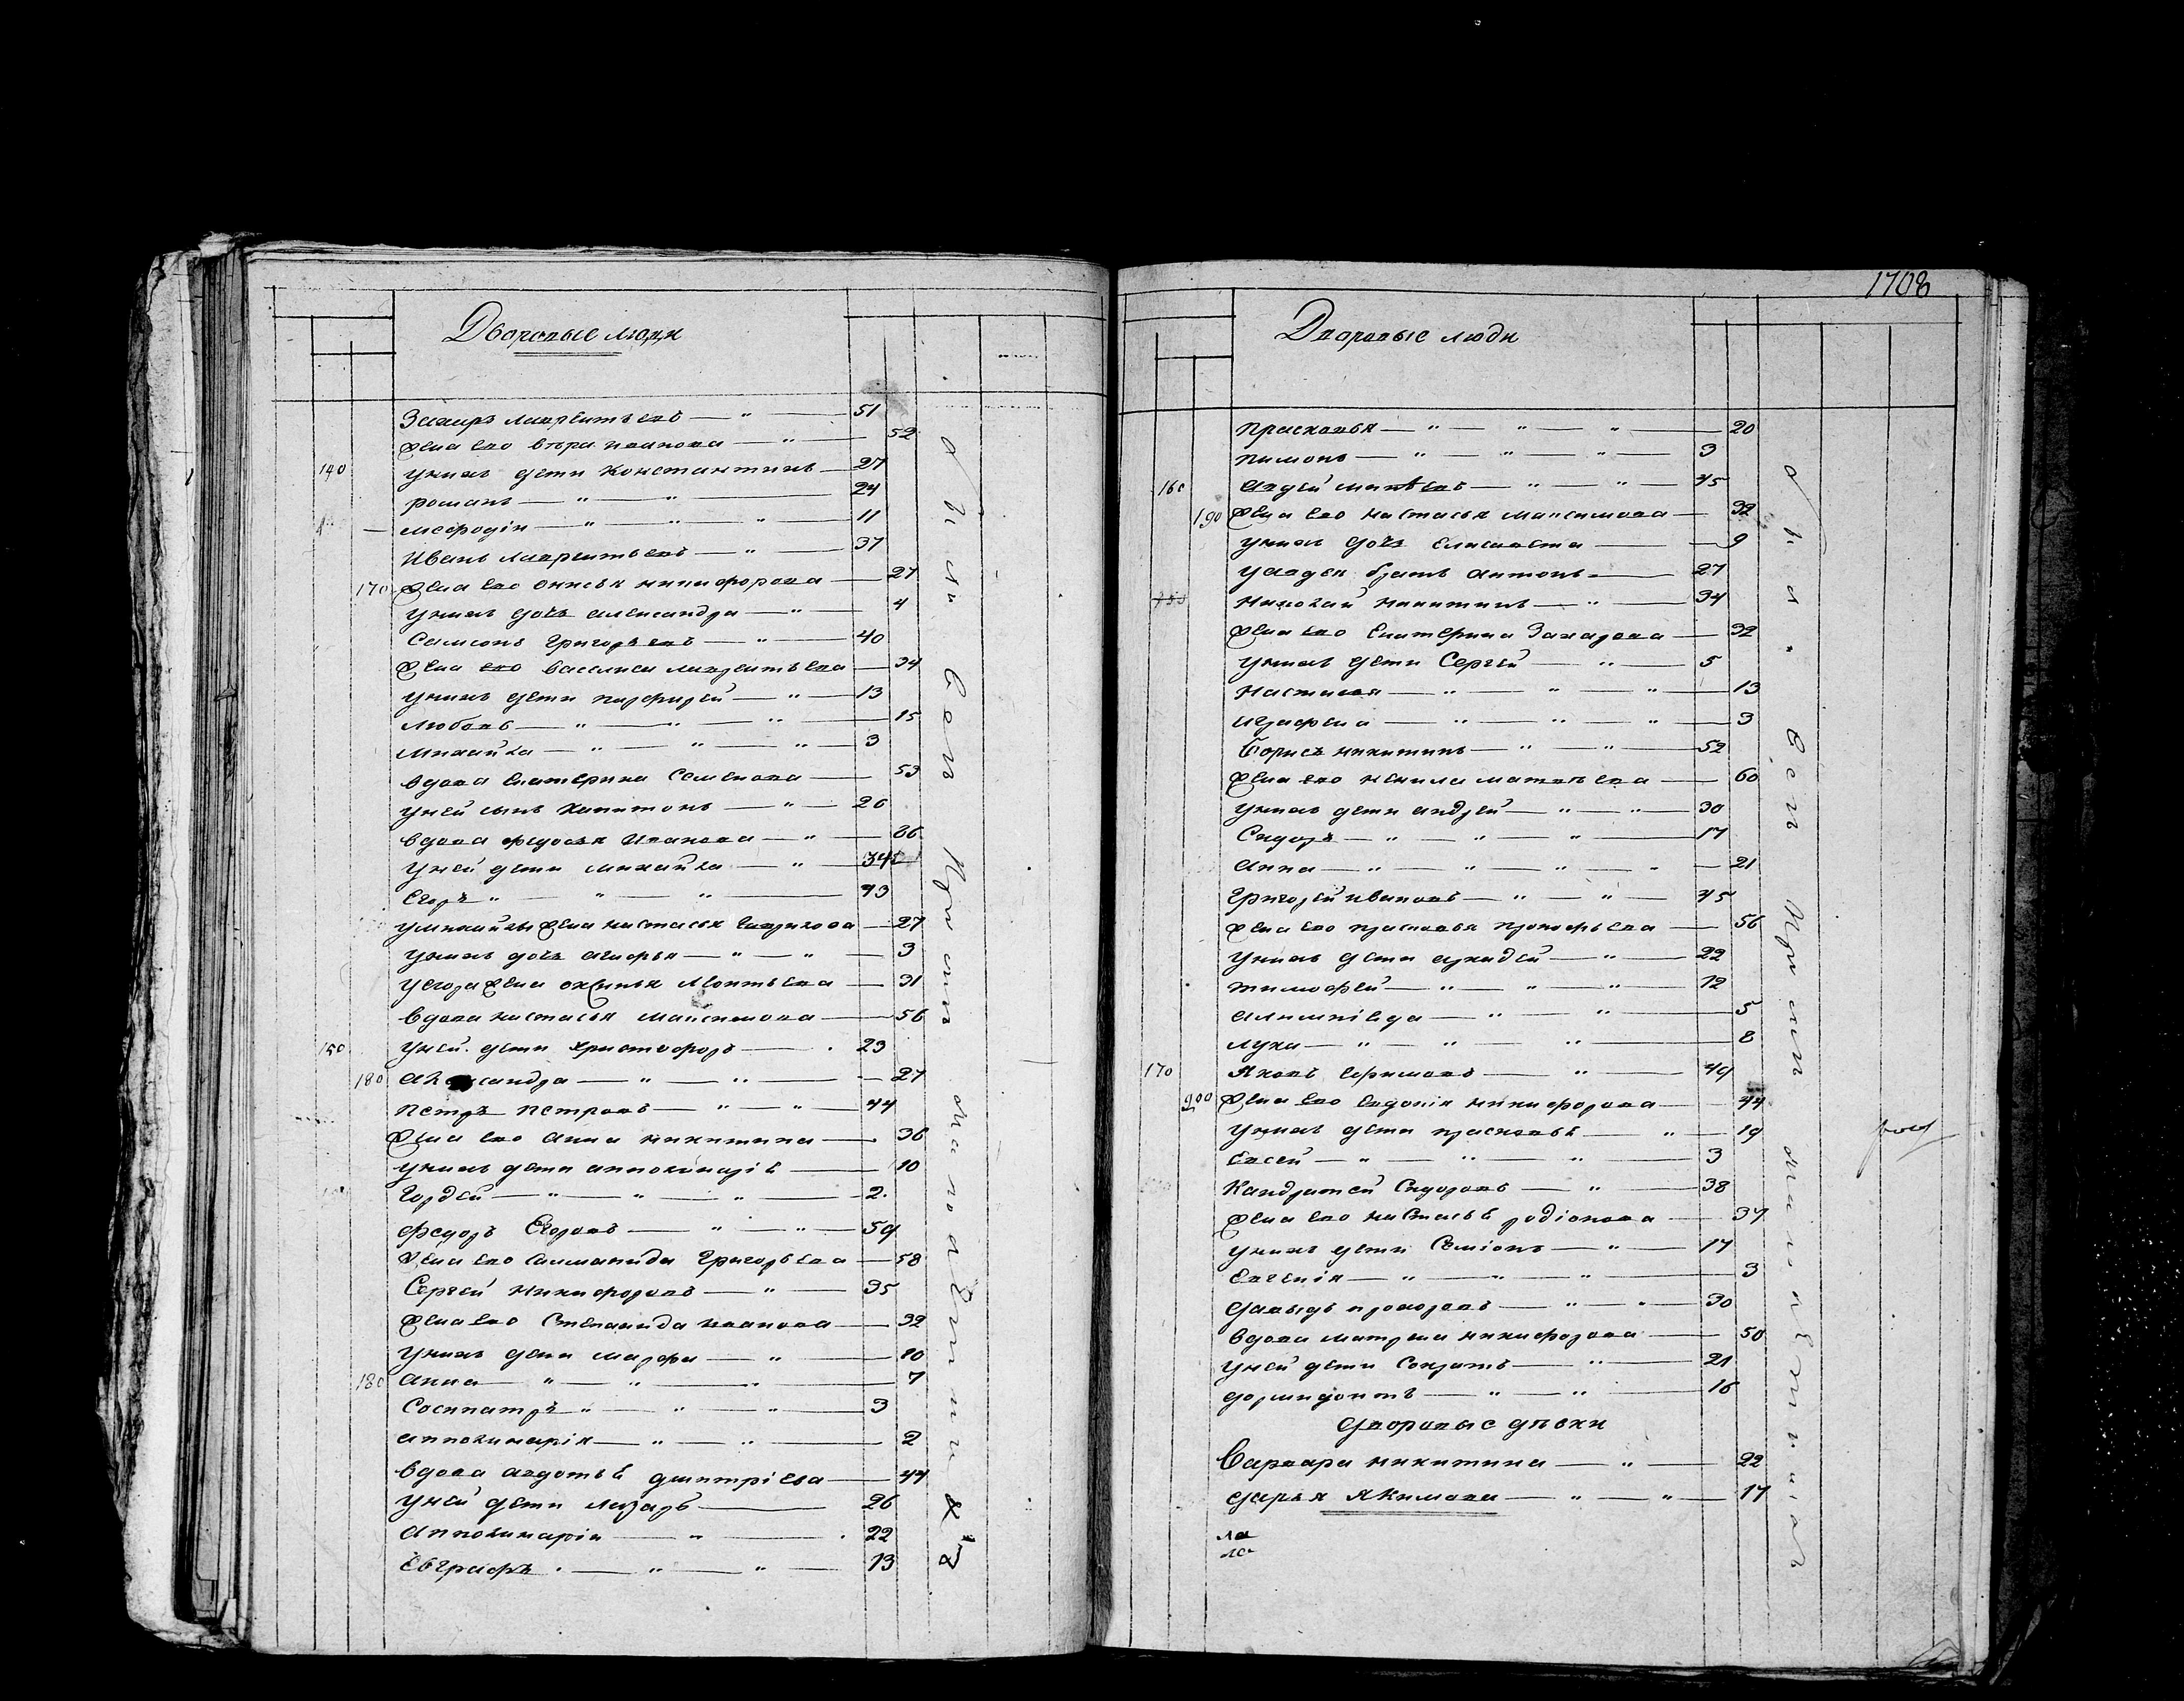 Дворовые люди
Захаръ Лаврентьевъ — " — 51
Жена ево Вѣра Иванова — " — 52
140 У нихъ дети Константинъ — 27
Романъ — " — " — 24
Мефодiй — " — " — " — 11
Иванъ Лаврентьевъ — " — 37
170 Жена ево Онисья Никифорова — 27
У нихъ дочь Александра — " — 4
Самсонъ Григорьевъ — " — 40
Жена ево Василиса Лаврентьева — 34
У нихъ дети Парфирей — " — 13
Любовь — " — " — " — 15
Михайла — " — " — " — 3
Вдова Екатерина Семенова — 53
У ней сынъ Капитонъ — " — 26
Вдова Федосья Иванова — " —
У ней дети Михайла — " — 34
Егоръ " — " — " —
У Михайлы Жена Настасья Гаврилова — 27
У нихъ дочь — " — " — 3
У Егора Жена Оксинья Леонтьева — 31
Вдова Настасья Максимова — 56
150 У ней дети Христофоръ — 23
180 Александра — " — " — 27
Петръ Петровъ — " — " — 44
Жена ево Анна Никитина — 36
У нихъ дети Апполинарiе — 10
Гордей — " — " — " — 2
Федоръ Егоровъ — " — " — 59
Жена ево Саламанида Григорьева — 58
Сергей Никифоровъ — " — 35
Жена ево Степанида Иванова — 32
У нихъ дети Марфа — " — 10
180 Анна — " — " — " — 7
Сосипатръ " — " — " — 3
Апполинарiя — " — " — 2
Вдова Авдотьѣ Дмитрiева — 44
У ней дети Лазарь — 26
Апполинарiя — " — 22
Евграфъ — " — " — 13
были Все при исповѣди
1708
Дворовые люди
Прасковья — " — " — " — 20
Пимонъ — " — " — " — 3
160 Авдей Матвѣевъ — " — " — 45
190 Жена ево Настасья Максимова — 32
У нихъ дочь Елисавета — 9
У Авдея братъ Антонъ — 27
Николай Никитинъ — " — 34
Жена ево Екатерина Захарова — 32
У нихъ дети Сергей — " — 5
Настасья — " — " — " — 13
Аграфена — " — " — " — 3
Борисъ Никитинъ — " — " — 52
Жена ево Ненила Матвѣева — 60
У нихъ дети Андрей — " — " — 30
Сидоръ — " — " — " — 17
Анна — " — " — " — " — 21
Григорей Ивановъ — " — " — 45
Жена ево Прасковья Прокофьева — 56
У нихъ дети Аркадей — " — 22
Тимофей — " — " — " — 12
Алимпiеда — " — " — 5
Лука — " — " — " — 8
170 Яковъ Ефимовъ — " — 49
200 Жена ево Евдокiя Никифорова — 44
У нихъ дети Прасковьѣ — " — 19
Евсей — " — " — " — 3
Кандратей Сидоровъ — " — 38
Жена ево Настасьѣ Родiонова — 37
У нихъ дети Семiонъ — " — 17
Евгенiя — " — " — " — 3
Давыдъ Прохоровъ — " — " — 30
Вдова Матрена Никифорова — 50
У ней дети Сократъ — " — 21
Дормидонтъ — " — " — 16
Дворовые дѣвки
Варвара Никитина — " — 22
Дарья Якимова — " — " — 17
были Все при